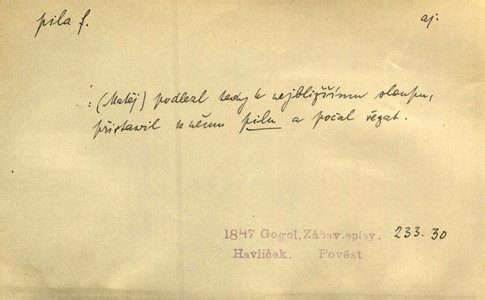 pila f. aj.
: (Matěj) podlezl tedy k nejbližšímu sloupu,
přistavil k němu pilu a počal řezat.
1847 Gogol, Zábav.spisy. 233. 30
Havlíček. Pověst